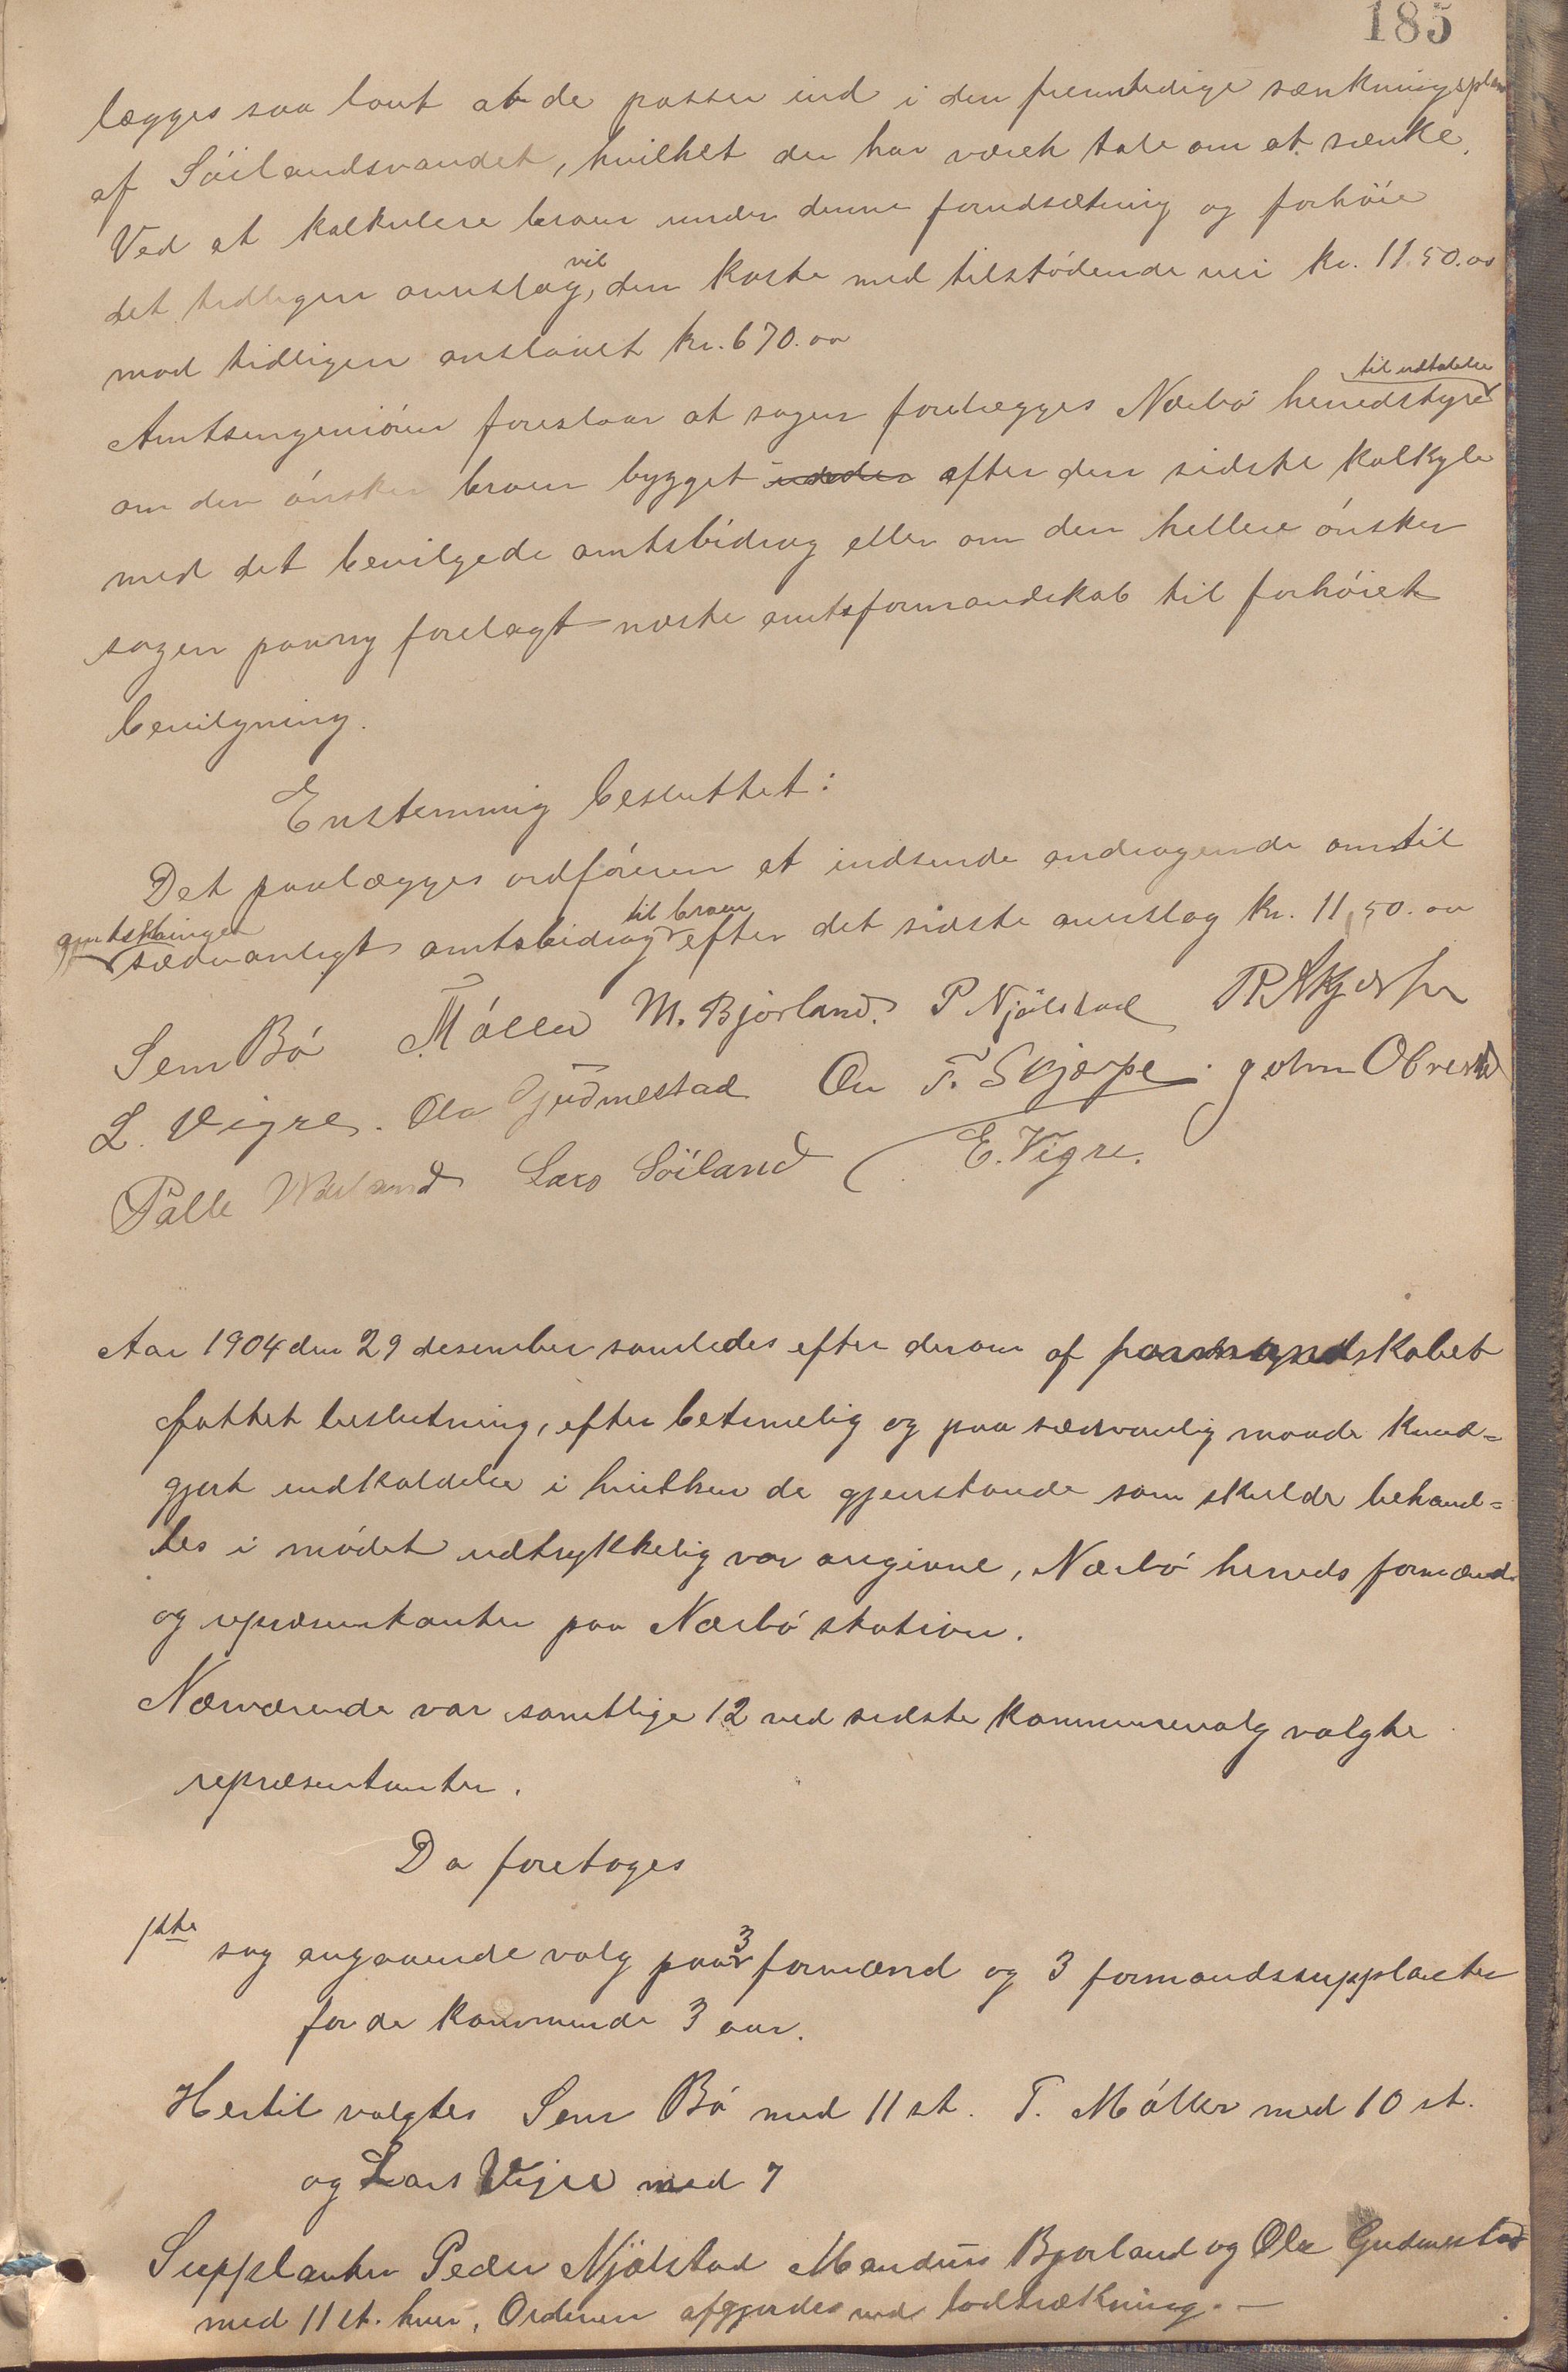 185
lægges saa lavt at de passer ind i den fremtidige sænkningsplan
af Söilandsvandet, hvilket der har været tale om at sænke.
Ved at kalkulere broen under denne forudsætning og forhöie
det tidligere overslag, vil den koste med tilstödende vei kr. 1150.00
mod tidligere anslaaet kr. 670.00
Amtsingeniören foreslaar at sagen forelægges Nærbö herredstyre til udtalelse
om den önsker broen bygget efter den sidste kalkyle
med det bevilgede amtsbidrag eller om den hellere önsker
sagen paany forelagt næste amtsformandskab til forhöiet
bevilgning.
Enstemmig besluttet:
Det paalægges ordföreren at indsende andragende om til
amtstinget sædvanligt amtsbidrag til broen efter det sidste overslag kr. 1150.00
Sem Bö T Möller M. Bjorland. P Njölstad R Skjerpe
L. Vigre. Ola Gudmestad On T. Skjerpe. John Obrestad
Palle Warland Lars Söiland E. Vigre.
Aar 1904 den 29 desember samledes efter derom af formandskabet
fattet beslutning, efter betimelig og paa sædvanlig maade kund=
gjort indkaldelse i hvilken de gjenstande som skulde behand=
les i mödet udtrykkelig var angivne, Nærbö herreds formænd
og repræsentanter paa Nærbö station.
Nærværende var samtlige 12 ved sidste kommunevalg valgte
repræsentanter.
Da foretoges
1ste sag angaaende valg paa 3 formænd og 3 formandssupplanter
for de kommende 3 aar.
Hertil valgtes Sem Bö med 11 st. T. Möller med 10 st.
og Lars Vigre med 7
Supplanter Peder Njölstad Mandius Bjorland og Ole Gudmestad
med 11 st. hver, Ordenen afgjordes ved lodtrækning. —